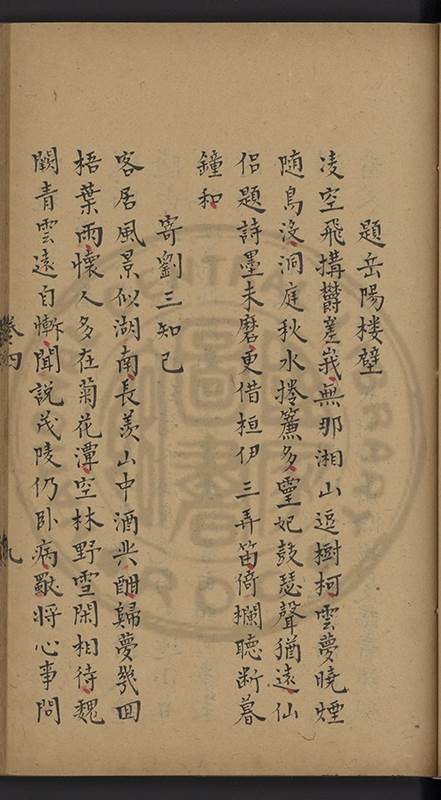 題岳陽楼壁
凌空飛搆欝嵳峩無那湘山逗樹柯雲夢曉煙
随鳥没洞庭秋水捲簾多靈妃鼓瑟聲猶遠仙
侣題詩墨未磨更借桓伊三弄笛倚攔聽断暮
鐘和
寄劉三知己
客居風景似湖南長羨山中酒共酣歸夢幾回
梧葉雨懐人多在菊花潭空林野雪閑相待魏
闕青雲遠自慚聞説茂陵仍卧病歇将心事問
卷四